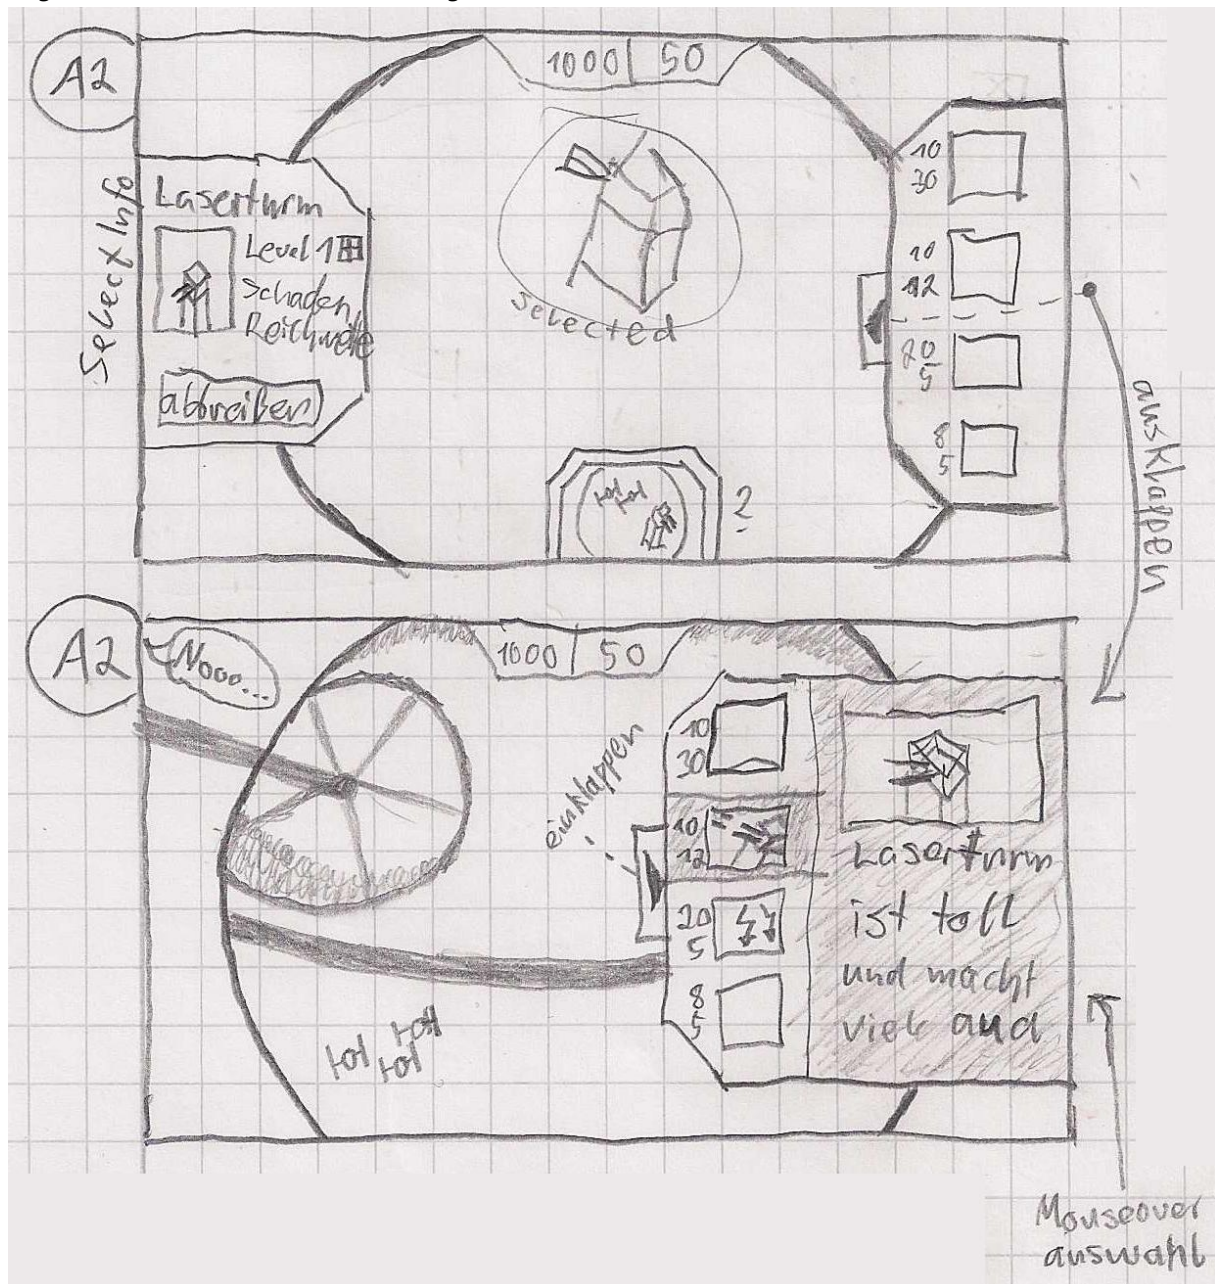 A2
1000 50
SelectInfo
Laserturm
Level 1
Schaden
Reichweite
abbreißen
selected
10
30
10
12
20
5
8
5
2
ausklappen
A2
Nooo...
1000 50
einklappen
10
30
10
12
20
5
8
5
Laserturm
ist toll
und macht
viele aua
Mouseover
auswahl